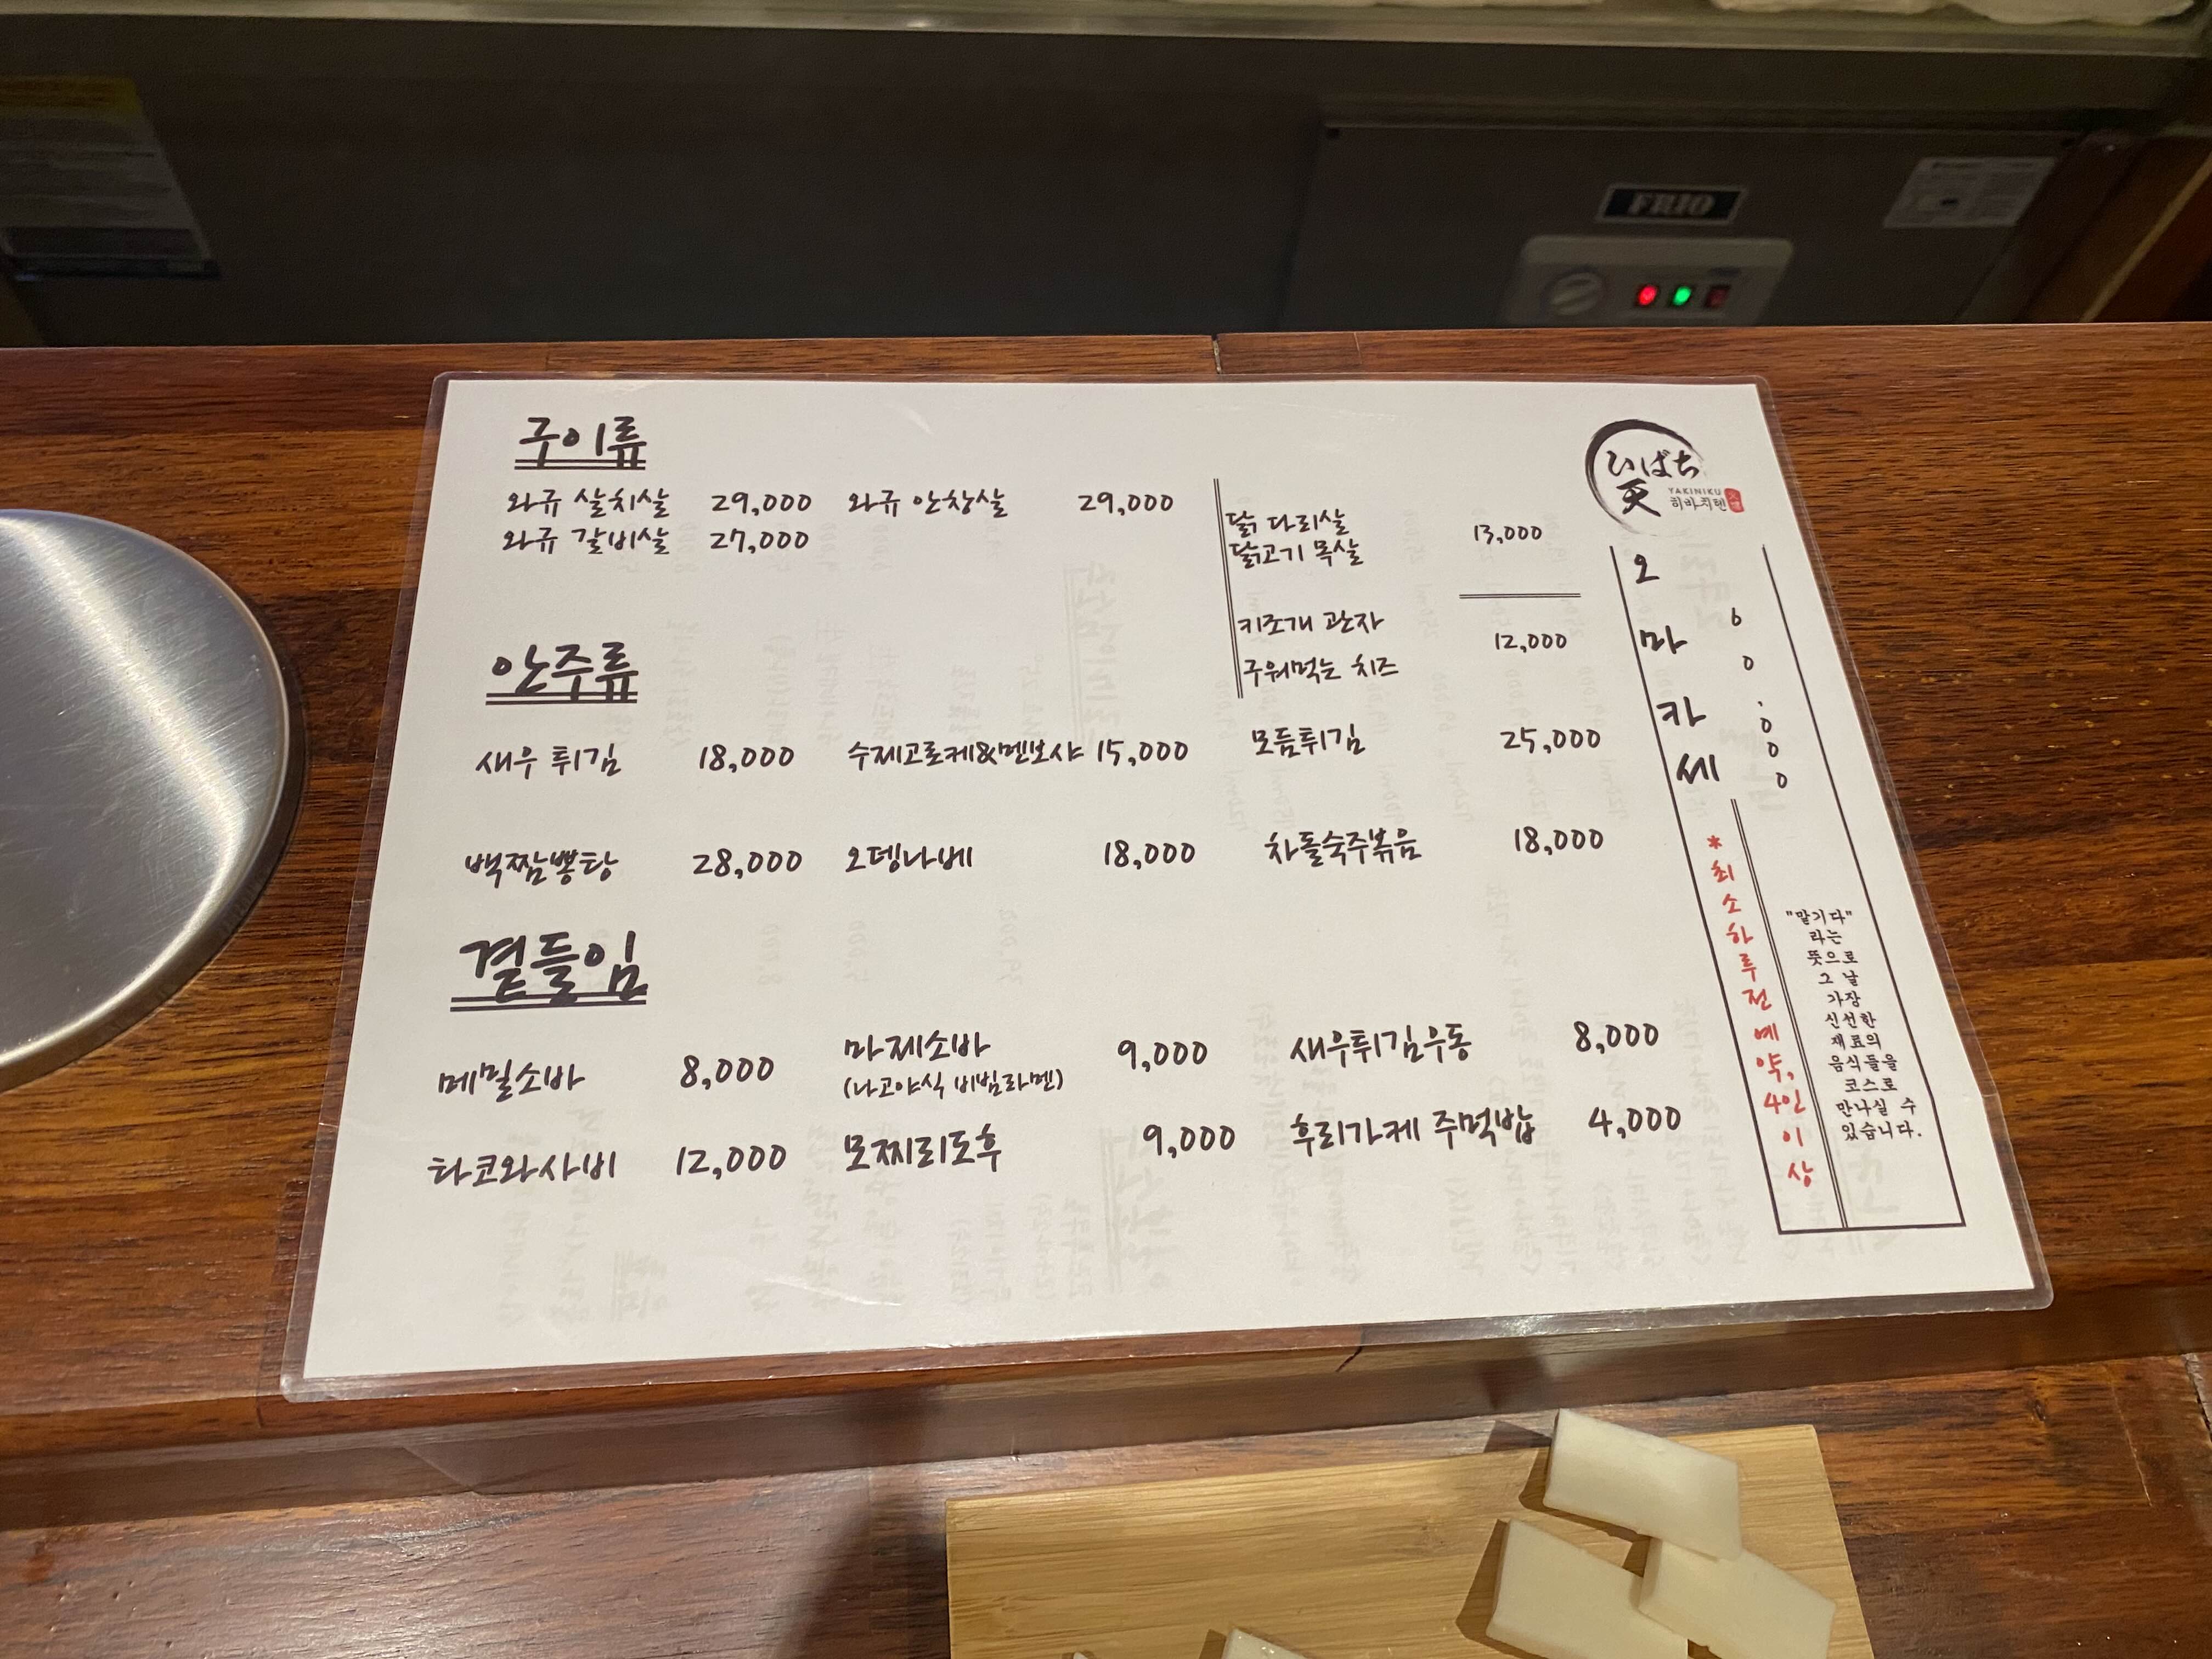 FRIO
ひばち
天
YAKINIKU
히바치텐
구이류
와규 살치살 29,000 와규 안창살 29,000
와규 갈비살 27,000
닭 다리살
닭고기 목살 13,000
키조개 관자
구워먹는 치즈 12,000
안주류
새우 튀김 18,000 수제고로케&멘보샤 15,000 모듬튀김 25,000
백짬뽕탕 28,000 오뎅나베 18,000 차돌숙주볶음 18,000
곁들임
메밀소바 8,000 마제소바 9,000 새우튀김우동 8,000
(나고야식 비빔라멘)
타코와사비 12,000 모찌리도후 9,000 후리가케 주먹밥 4,000
오마카세 60.000
*최소하루전예약,4인이상
"맡기다"
라는
뜻으로
그 날
가장
신선한
재료의
음식들을
코스로
만나실 수
있습니다.